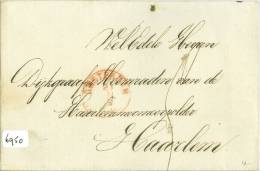 Wel Edele Heeren
Dijkgraaf Heemraden van de
Haarlemmermeerpolder
Haarlem
6950